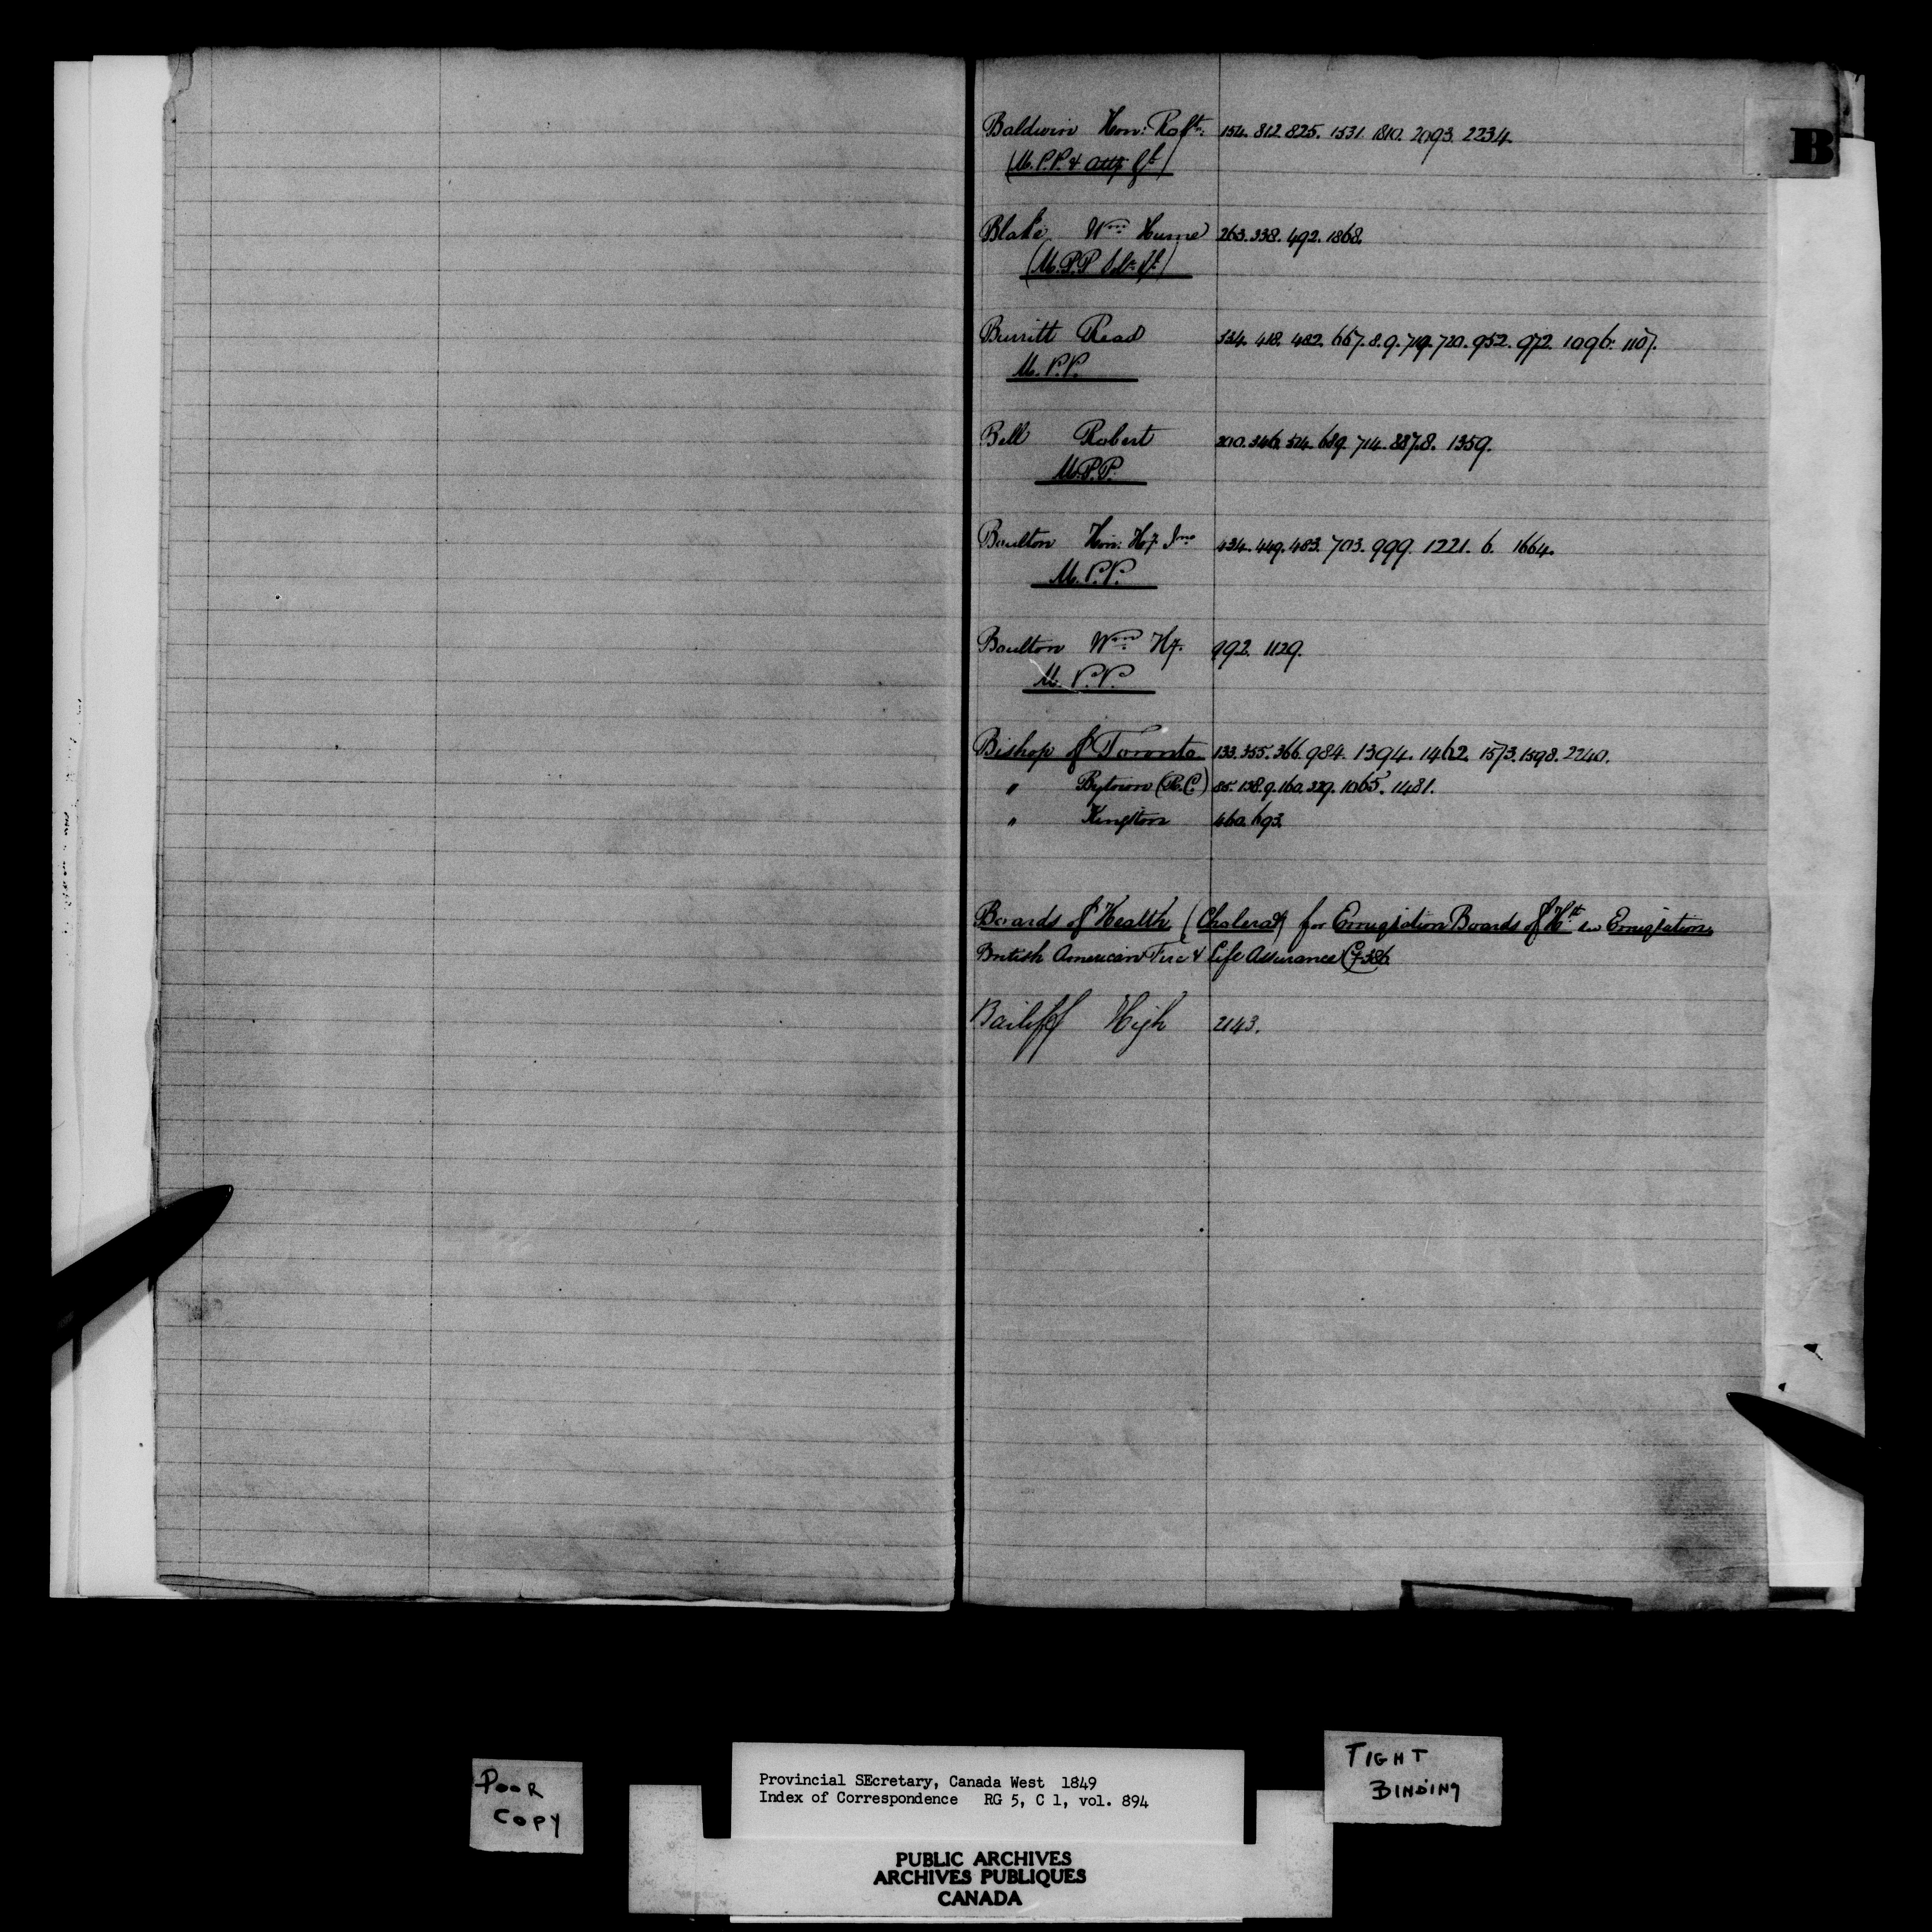 B
Baldwin Hon: Robt: 154. 812. 825. 1531. 1810. 2093. 2234.
(M.P.P. & Atty Gl)
Blake Wm Hume 263. 338. 492. 1868.
(M.P.P Solr Gl)
Burritt Read 334. 418. 482. 667. 8. 9. 719. 720. 952. 972. 1096. 1107.
M.P.P.
Bell Robert 200. 346. 514. 689. 714. 887.8. 1359.
M.P.P.
Boulton Hon: Hy. Jno 434. 449. 483. 703. 999. 1221. 6. 1664.
M.P.P.
Boulton Wm Hy. 992. 1129.
M.P.P.
Bishop of Toronto 133. 355. 366. 984. 1394. 1462. 1573. 1598. 2240.
" Bytown (R.C.) 85. 138. 9. 160. 329. 1065. 1481.
" Kingston 460. 693.
Boards of Health (Cholera) for Emigration Boards of Hlt see Emigration
British American Fire & Life Assurance Co 386
Bailiff High 2143.
POOR
COPY
Provincial SEcretary, Canada West 1849
Index of Correspondence RG 5, C 1, vol. 894
TIGHT
BINDING
PUBLIC ARCHIVES
ARCHIVES PUBLIQUES
CANADA